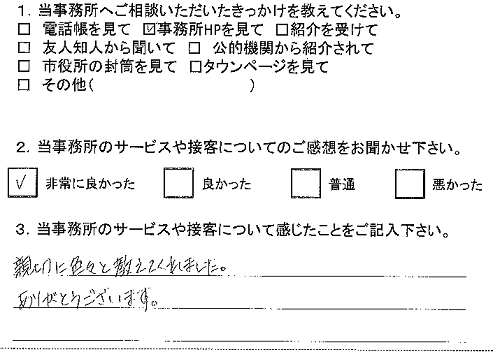 1. 当事務所へご相談いただいたきっかけを教えてください。
□ 電話帳を見て ☑事務所HPを見て □紹介を受けて
□ 友人知人から聞いて □ 公的機関から紹介されて
□ 市役所の封筒を見て □タウンページを見て
□ その他( )
2. 当事務所のサービスや接客についてのご感想をお聞かせ下さい。
☑ 非常に良かった □ 良かった □ 普通 □ 悪かった
3. 当事務所のサービスや接客について感じたことをご記入下さい。
親切に色々と教えてくれました。
ありがとうございます。